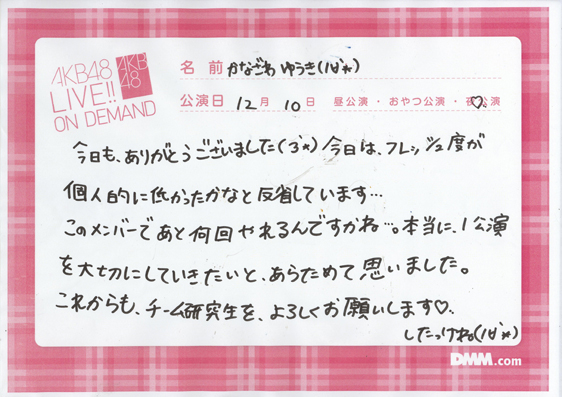 AKB48
LIVE!!
ON DEMAND
AKB
48
名 前 かなざわ ゆうき('ω'*)
公演日 12月 10日 昼公演・おやつ公演・夜公演
今日も、ありがとうございました('з'*)今日は、フレッシュ度が
個人的に低かったかなと反省しています…
このメンバーであと何回やれるんですかね…。本当に、1公演
を大切にしていきたいと、あらためて思いました。
これからも、チーム研究生を、よろしくお願いします♡。
したっけね('ω'*)
DMM.com